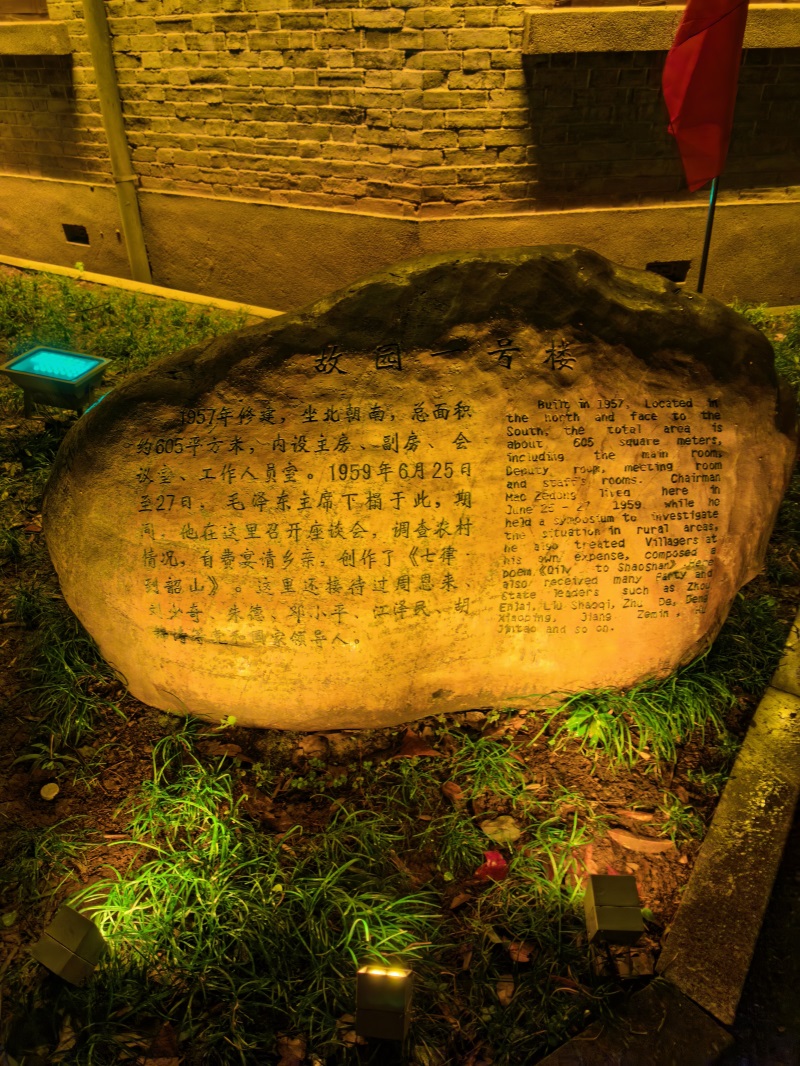 故园一号楼
1957年修建，坐北朝南，总面积
约605平方米，内设主房、副房、会
议室、工作人员室。1959年6月25日
至27日，毛泽东主席下榻于此，期
间，他在这里召开座谈会，调查农村
情况，自费宴请乡亲，创作了《七律·
到韶山》。这里还接待过周恩来、
刘少奇、朱德、邓小平、江泽民、胡
国家领导人。
Built in 1957, Located in
the north and face to the
South, the total area is
about 605 square meters,
including the main room,
Deputy room, meeting room
and staff's rooms. Chairman
Mao Zedong lived here in
June 25 - 27 1959, while he
held a symposium to investigate
the situation in rural areas,
he also treated Villagers at
his own expense, composed a
poem《Qily to Shaoshan》. Here
also received many Party and
State leaders such as Zhou
Enlai, Liu Shaoqi, Zhu De, Deng
Xiaoping, Jiang Zemin, Hu
Jintao and so on.